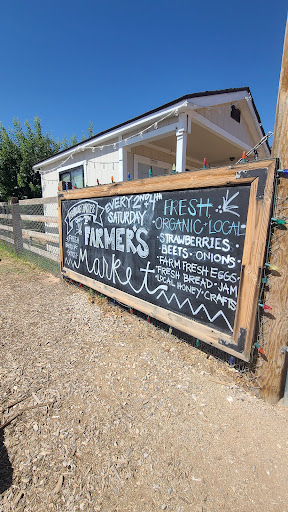 EVERY 2ND & 4TH
SATURDAY
FARMER'S
Market
FRESH
ORGANIC • LOCAL
• STRAWBERRIES •
BEETS • ONIONS
• FARM FRESH EGGS
• FRESH BREAD • JAM
LOCAL HONEY • CRAFTS